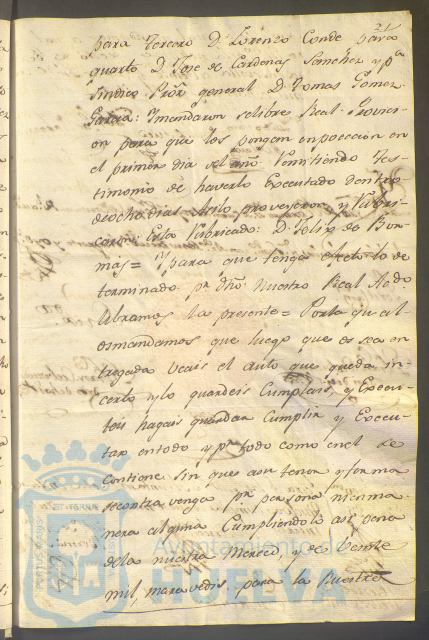 21
para Tercero D. Lorenzo Conde para
quarto D. Jose de Cardenas Sanchez y pª
Sindico Pror general D. Tomas Gomez
Garcia: Ymandaron selibre Real Provici
on para que los pongan enpoceción en
el primer dia del año Remitiendo Tes
timonio de haverlo Executado dentro
deocho dias Asilo proveyeron y Rubri
caron: Esta Rubricado: D. Felix de Bor
mas = Y para que tenga efecto lo de
terminado pr dho Nuestro Real Ado
libramos la presente = Porla qual
osmandamos que luego que os sea en
tregada veais el auto que queda in
certo y lo guardeis Cumplais, y Execu
teis hagais guardar Cumplir y Execu
tar entodo y pr todo como enel se
contiene sin que asu tenor y forma
secontravenga pr persona ni enma
nera alguna Cumpliendolo asi pena
dela nuestra Merced, y de Veinte
mil, maravedis para la Nuestra
Ayuntamiento de
HUELVA